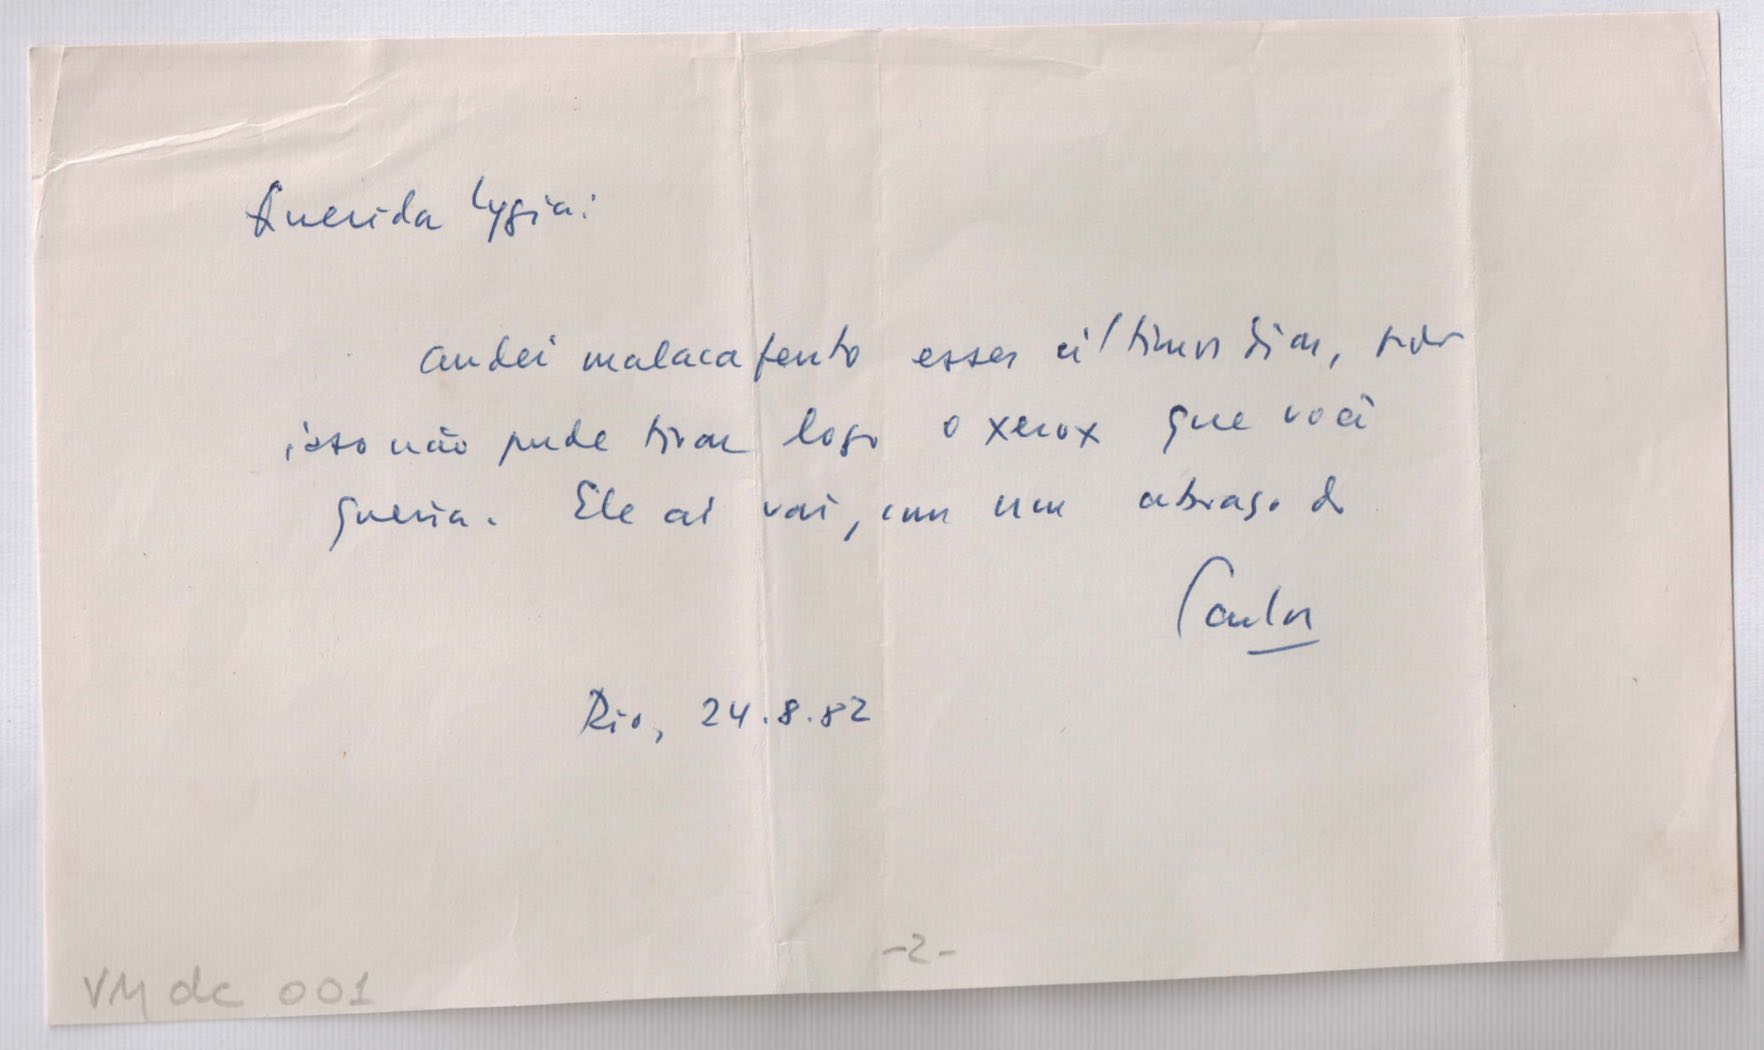 Querida Lygia:
andei malacafento esses últimos dias, por
isso não pude tirar logo o xerox que você
queria. Ele aí vai, com um abraço do
Carlos
Rio, 24.8.82
-2-
VM dc 001